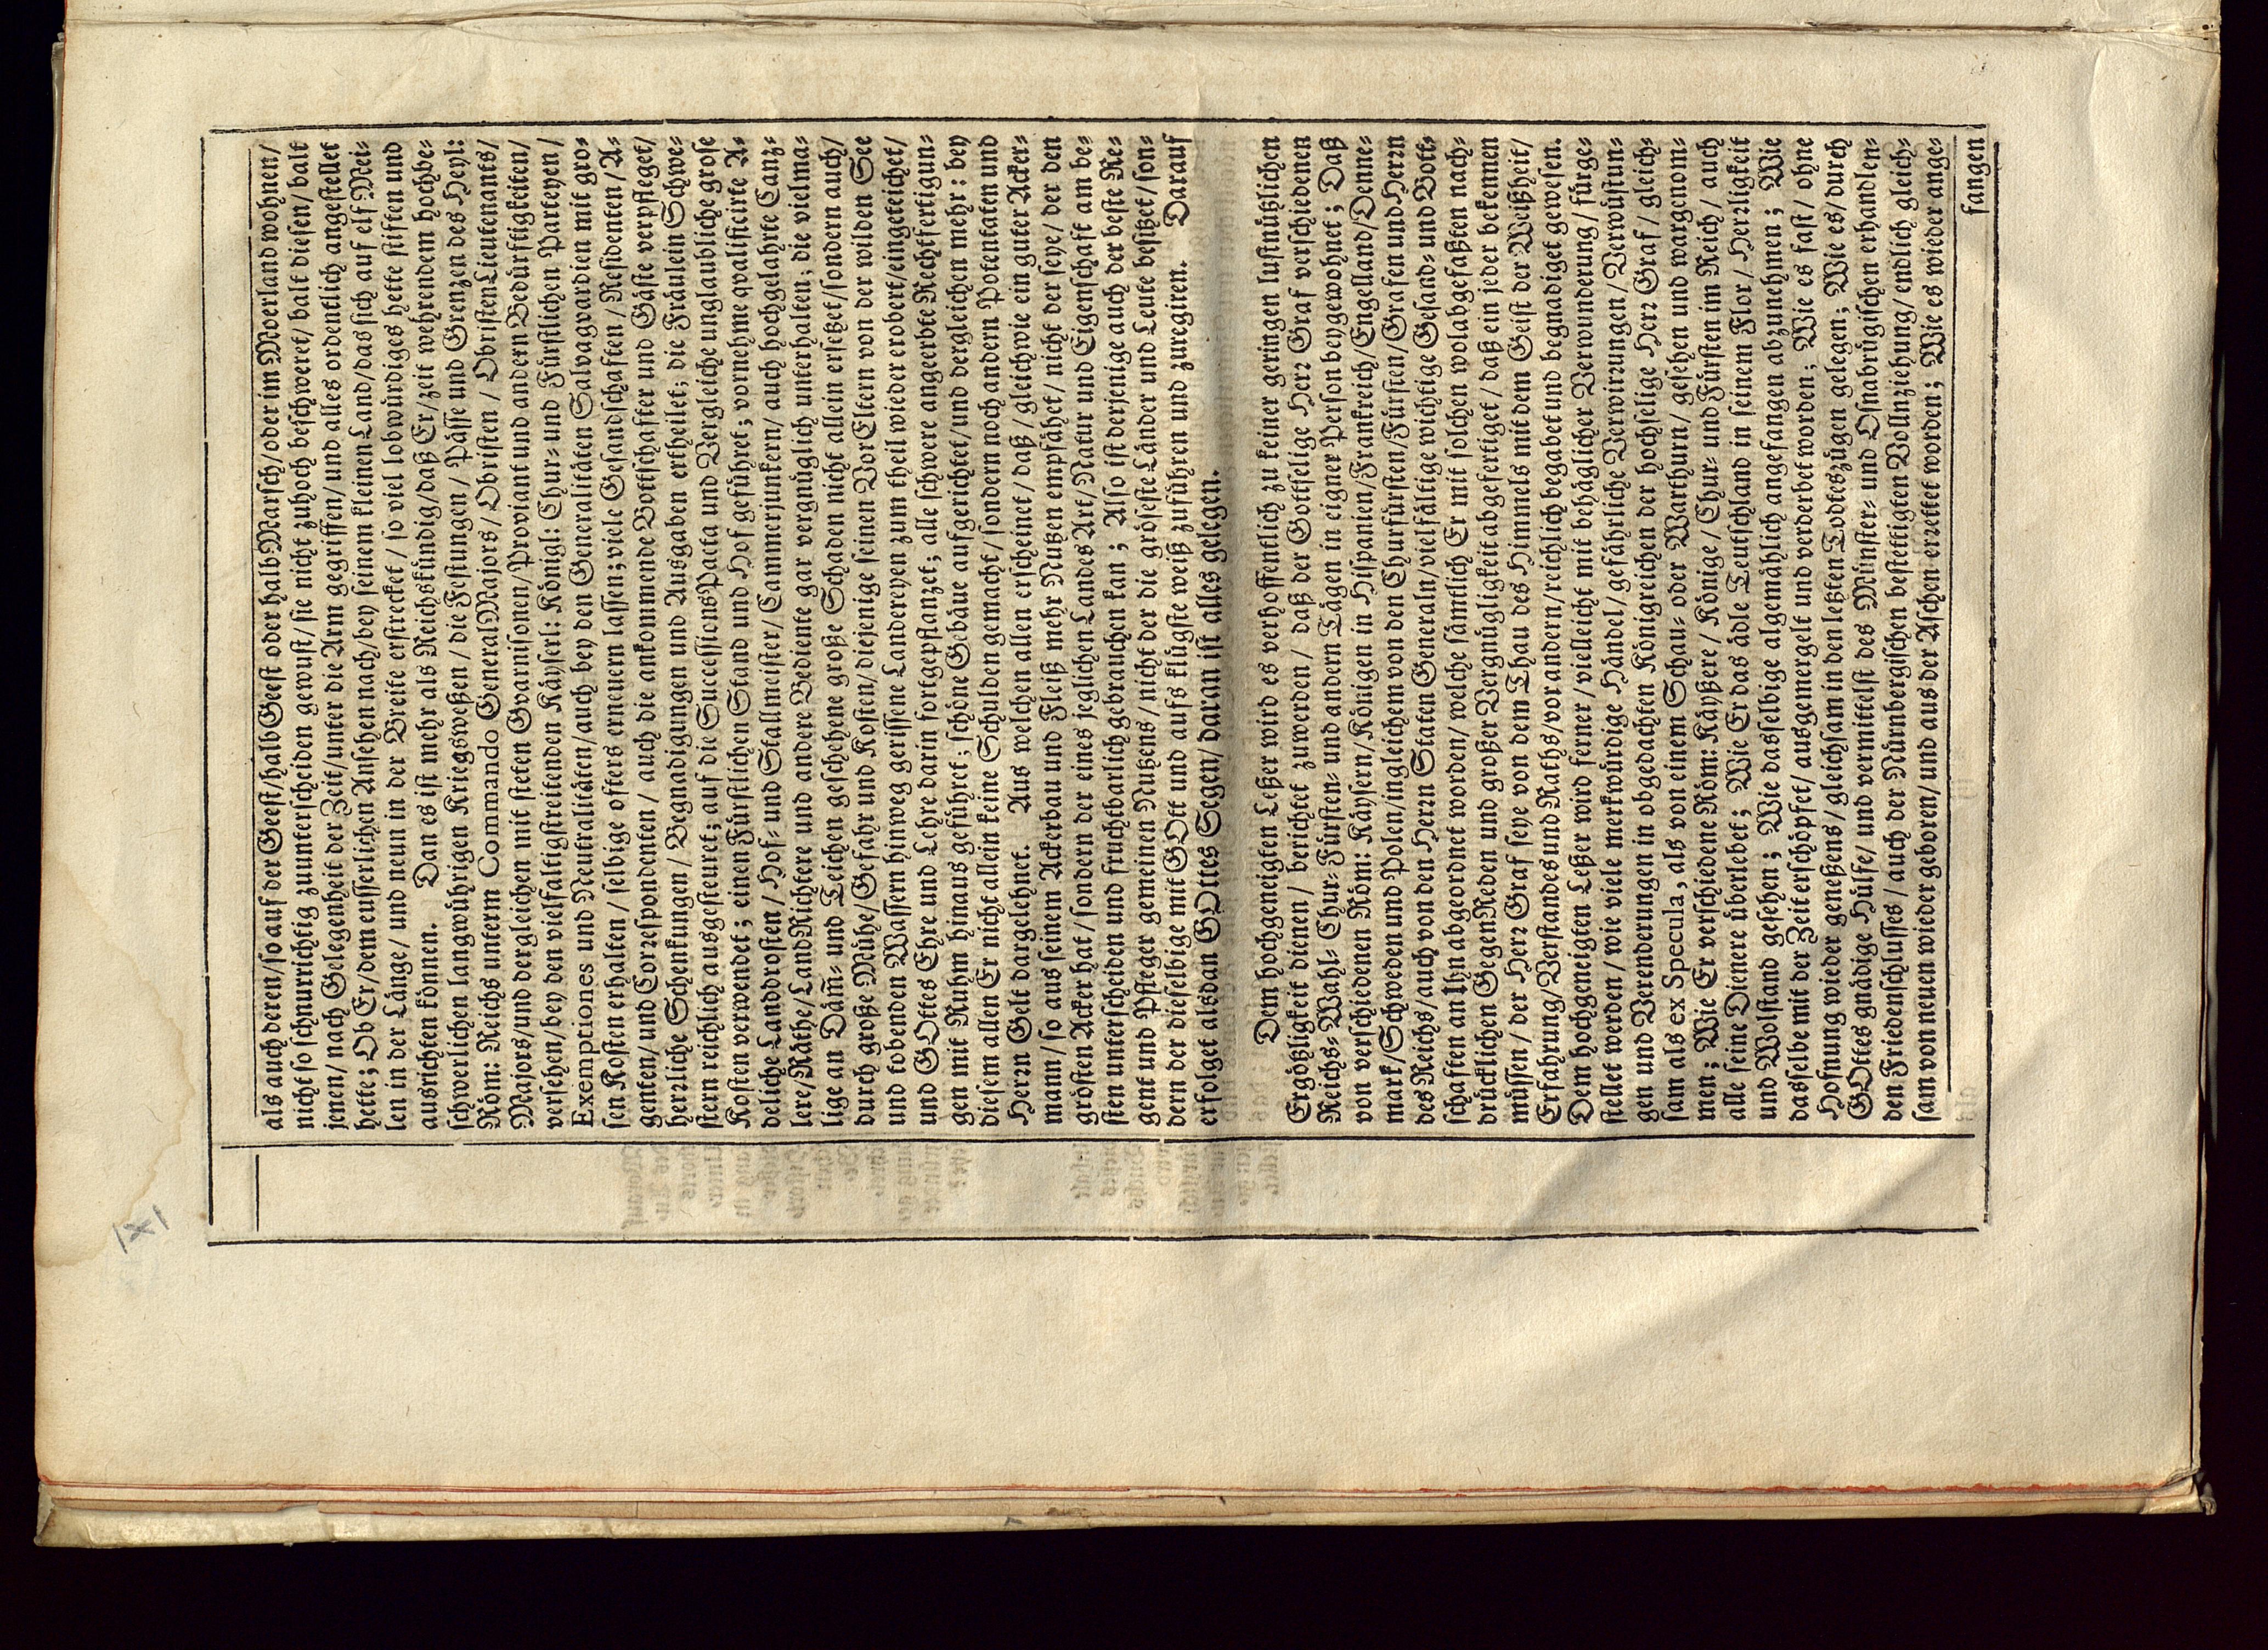 als auch deren/so auf der Geest/halb Geest oder halb Marsch/oder im Moerland wohnen/
nicht so schnurrichtig zuunterscheiden gewust/sie nicht zuhoch beschweret/balt diesen/balt
jenen/nach Gelegenheit der Zeit/unter die Arm gegriffen/und alles ordentlich angestellet
hette; Ob Er/dem eusserlichen Ansehen nach/bey seinem kleinen Land/das sich auf elf Mei⸗
len in der Länge/und neun in der Breite erstrecket/so viel lobwürdiges hette stiften und
ausrichten können. Dan es ist mehr als Reichskündig/daß Er/zeit wehrendem hochbe⸗
schwerlichen langwührigen Kriegsweßen/die Festungen/Pässe und Grenzen des Heyl:
Röm: Reichs unterm Commando General Majors/Obristen/Obristen Lieutenants/
Majors/und dergleichen mit steten Gvarnisonen/Proviant und andern Bedürftigkeiten/
versehen/bey den vielfaltigstreitenden Käyserl: Königl: Chur⸗ und Fürstlichen Parteyen/
Exemptiones und Neutralitäten/auch bey den Generalitäten Salvagvardien mit gro⸗
sen Kosten erhalten/selbige ofters erneuern lassen; viele Gesandschaften/Residenten/A⸗
genten/und Correspondenten/auch die ankommende Bottschafter und Gäste verpfleget/
herrliche Schenkungen/Begnadigungen und Ausgaben ertheilet; die Fräulein Schwe⸗
stern reichlich ausgesteuret; auf die Successions Pacta und Vergleiche unglaubliche grose
Kosten verwendet; einen Fürstlichen Stand und Hof geführet; vornehme qvalificirte A⸗
deliche Landdrosten/Hof⸗ und Stallmeister/Cammerjunkern/auch hochgelahrte Canz⸗
lere/Räthe/Land Richtere und andere Bediente gar vergnüglich unterhalten; die vielma⸗
lige an Däm̃⸗ und Teichen geschehene große Schaden nicht allein ersetzet/sondern auch/
durch große Mühe/Gefahr und Kosten/diejenige seinen Vor Eltern von der wilden See
und tobenden Wassern hinweg gerissene Landereyen zum theil wieder erobert/eingeteichet/
und GOttes Ehre und Lehre darin fortgepflanzet; alle schwere angeerbte Rechtfertigun⸗
gen mit Ruhm hinaus geführet; schöne Gebäue aufgerichtet/und dergleichen mehr: bey
diesem allen Er nicht allein keine Schulden gemacht/sondern noch andern Potentaten und
Herrn Gelt dargelehnet. Aus welchen allen erscheinet/daß/gleichwie ein guter Acker⸗
mann/so aus seinem Ackerbau und Fleiß mehr Nutzen empfähet/nicht der seye/der den
grösten Acker hat/sondern der eines jeglichen Landes Art/Natur und Eigenschaft am be⸗
sten unterscheiden und fruchtbarlich gebrauchen kan; Also ist derjenige auch der beste Re⸗
gent und Pfleger gemeinen Nutzens/nicht der die gröseste Länder und Leute besitzet/son⸗
dern der dieselbige mit GOtt und aufs klügste weiß zuführen und zuregiren. Darauf
erfolget alsdan GOttes Segen/daran ist alles gelegen.
Dem hochgeneigten Leßer wird es verhoffentlich zu keiner geringen lustnützlichen
Ergötzligkeit dienen/berichtet zuwerden/daß der Gottselige Herr Graf verschiedenen
Reichs⸗Wahl⸗Chur⸗Fürsten⸗ und andern Tägen in eigner Person beygewohnet; Daß
von verschiedenen Röm: Käysern/Königen in Hispanien/Frankreich/Engelland/Denne⸗
mark/Schweden und Polen/ingleichem von den Churfürsten/Fürsten/Grafen und Herrn
des Reichs/auch von den Herrn Staten Generaln/vielfältige wichtige Gesand⸗ und Bott⸗
schaften an Ihn abgeordnet worden/welche sämtlich Er mit solchen wolabgefaßten nach⸗
drücklichen Gegen Reden und großer Vergnügligkeit abgefertiget/daß ein jeder bekennen
müssen/der Herr Graf seye von dem Thau des Himmels mit dem Geist der Weißheit/
Erfahrung/Verstandes und Raths/vor andern/reichlich begabet und begnadiget gewesen.
Dem hochgeneigten Leßer wird ferner/vielleicht mit behäglicher Verwunderung/fürge⸗
stellet werden/wie viele merkwürdige Händel/gefährliche Verwirrungen/Verwüstun⸗
gen und Verenderungen in obgedachten Königreichen der hochselige Herr Graf/gleich⸗
sam als ex Specula, als von einem Schau⸗ oder Warthurn/gesehen und wargenom⸗
men; Wie Er verschiedene Röm: Käyßere/Könige/Chur⸗ und Fürsten im Reich/auch
alle seine Dienere überlebet; Wie Er das ädle Teutschland in seinem Flor/Herrligkeit
und Wolstand gesehen; Wie dasselbige algemählich angefangen abzunehmen; Wie
dasselbe mit der Zeit erschöpfet/ausgemergelt und verderbet worden; Wie es fast/ohne
Hofnung wieder geneßens/gleichsam in den letzten Todteszügen gelegen; Wie es/durch
GOttes gnädige Hülfe/und vermittelst des Münster⸗ und Osnabrügischen erhandlen⸗
den Friedenschlusses/auch der Nürnbergischen bestettigten Vollnziehung/endlich gleich⸗
sam von neuen wieder geboren/und aus der Aschen errettet worden; Wie es wieder ange⸗
fangen